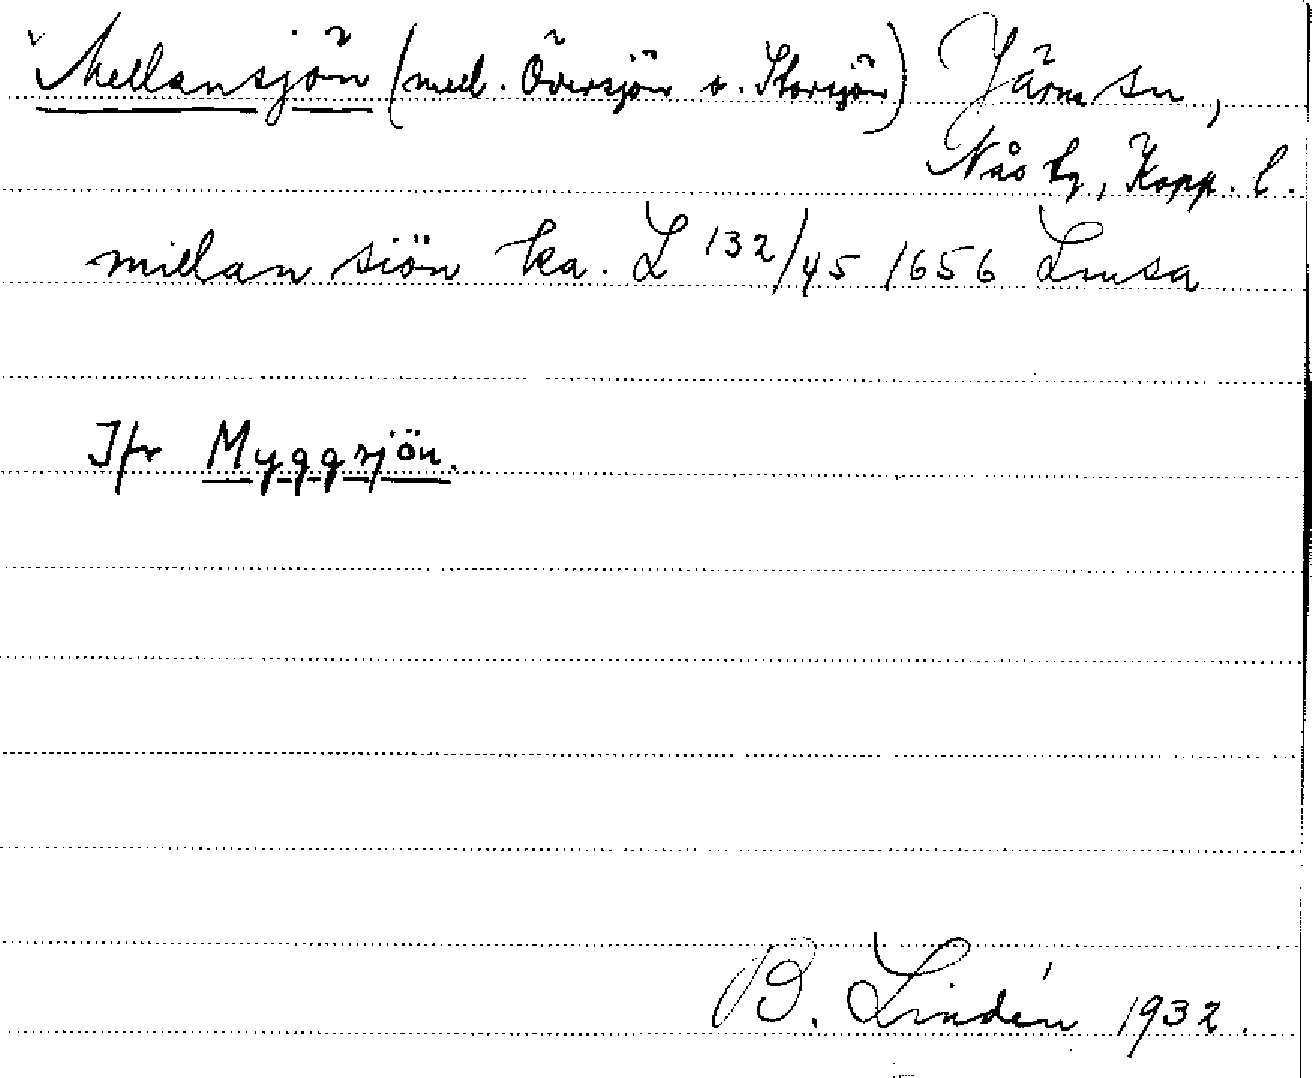 Mellansjön (mell. Översjön o. Storsjön) Järna sn,
Nås tg, Kopp. l.
millan siön ka. L 132/45 1656 Lmsa
Jfr Myggsjön.
B. Lindén 1932.